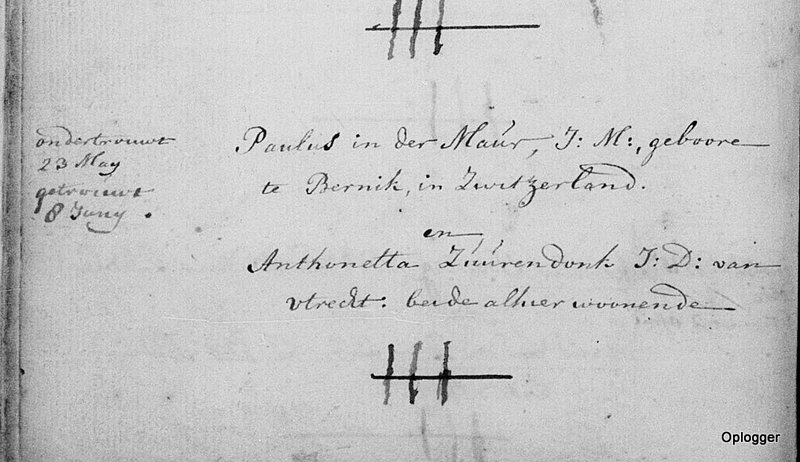 ondertrouwt
23 May
getrouwt
8 Juny.
Paulus in der Maur, J: M:, geboore
te Bernik, in Zwitzerland.
en
Anthonetta Zuurendonk J: D: van
Utrecht: beide alhier woonende
Oplogger